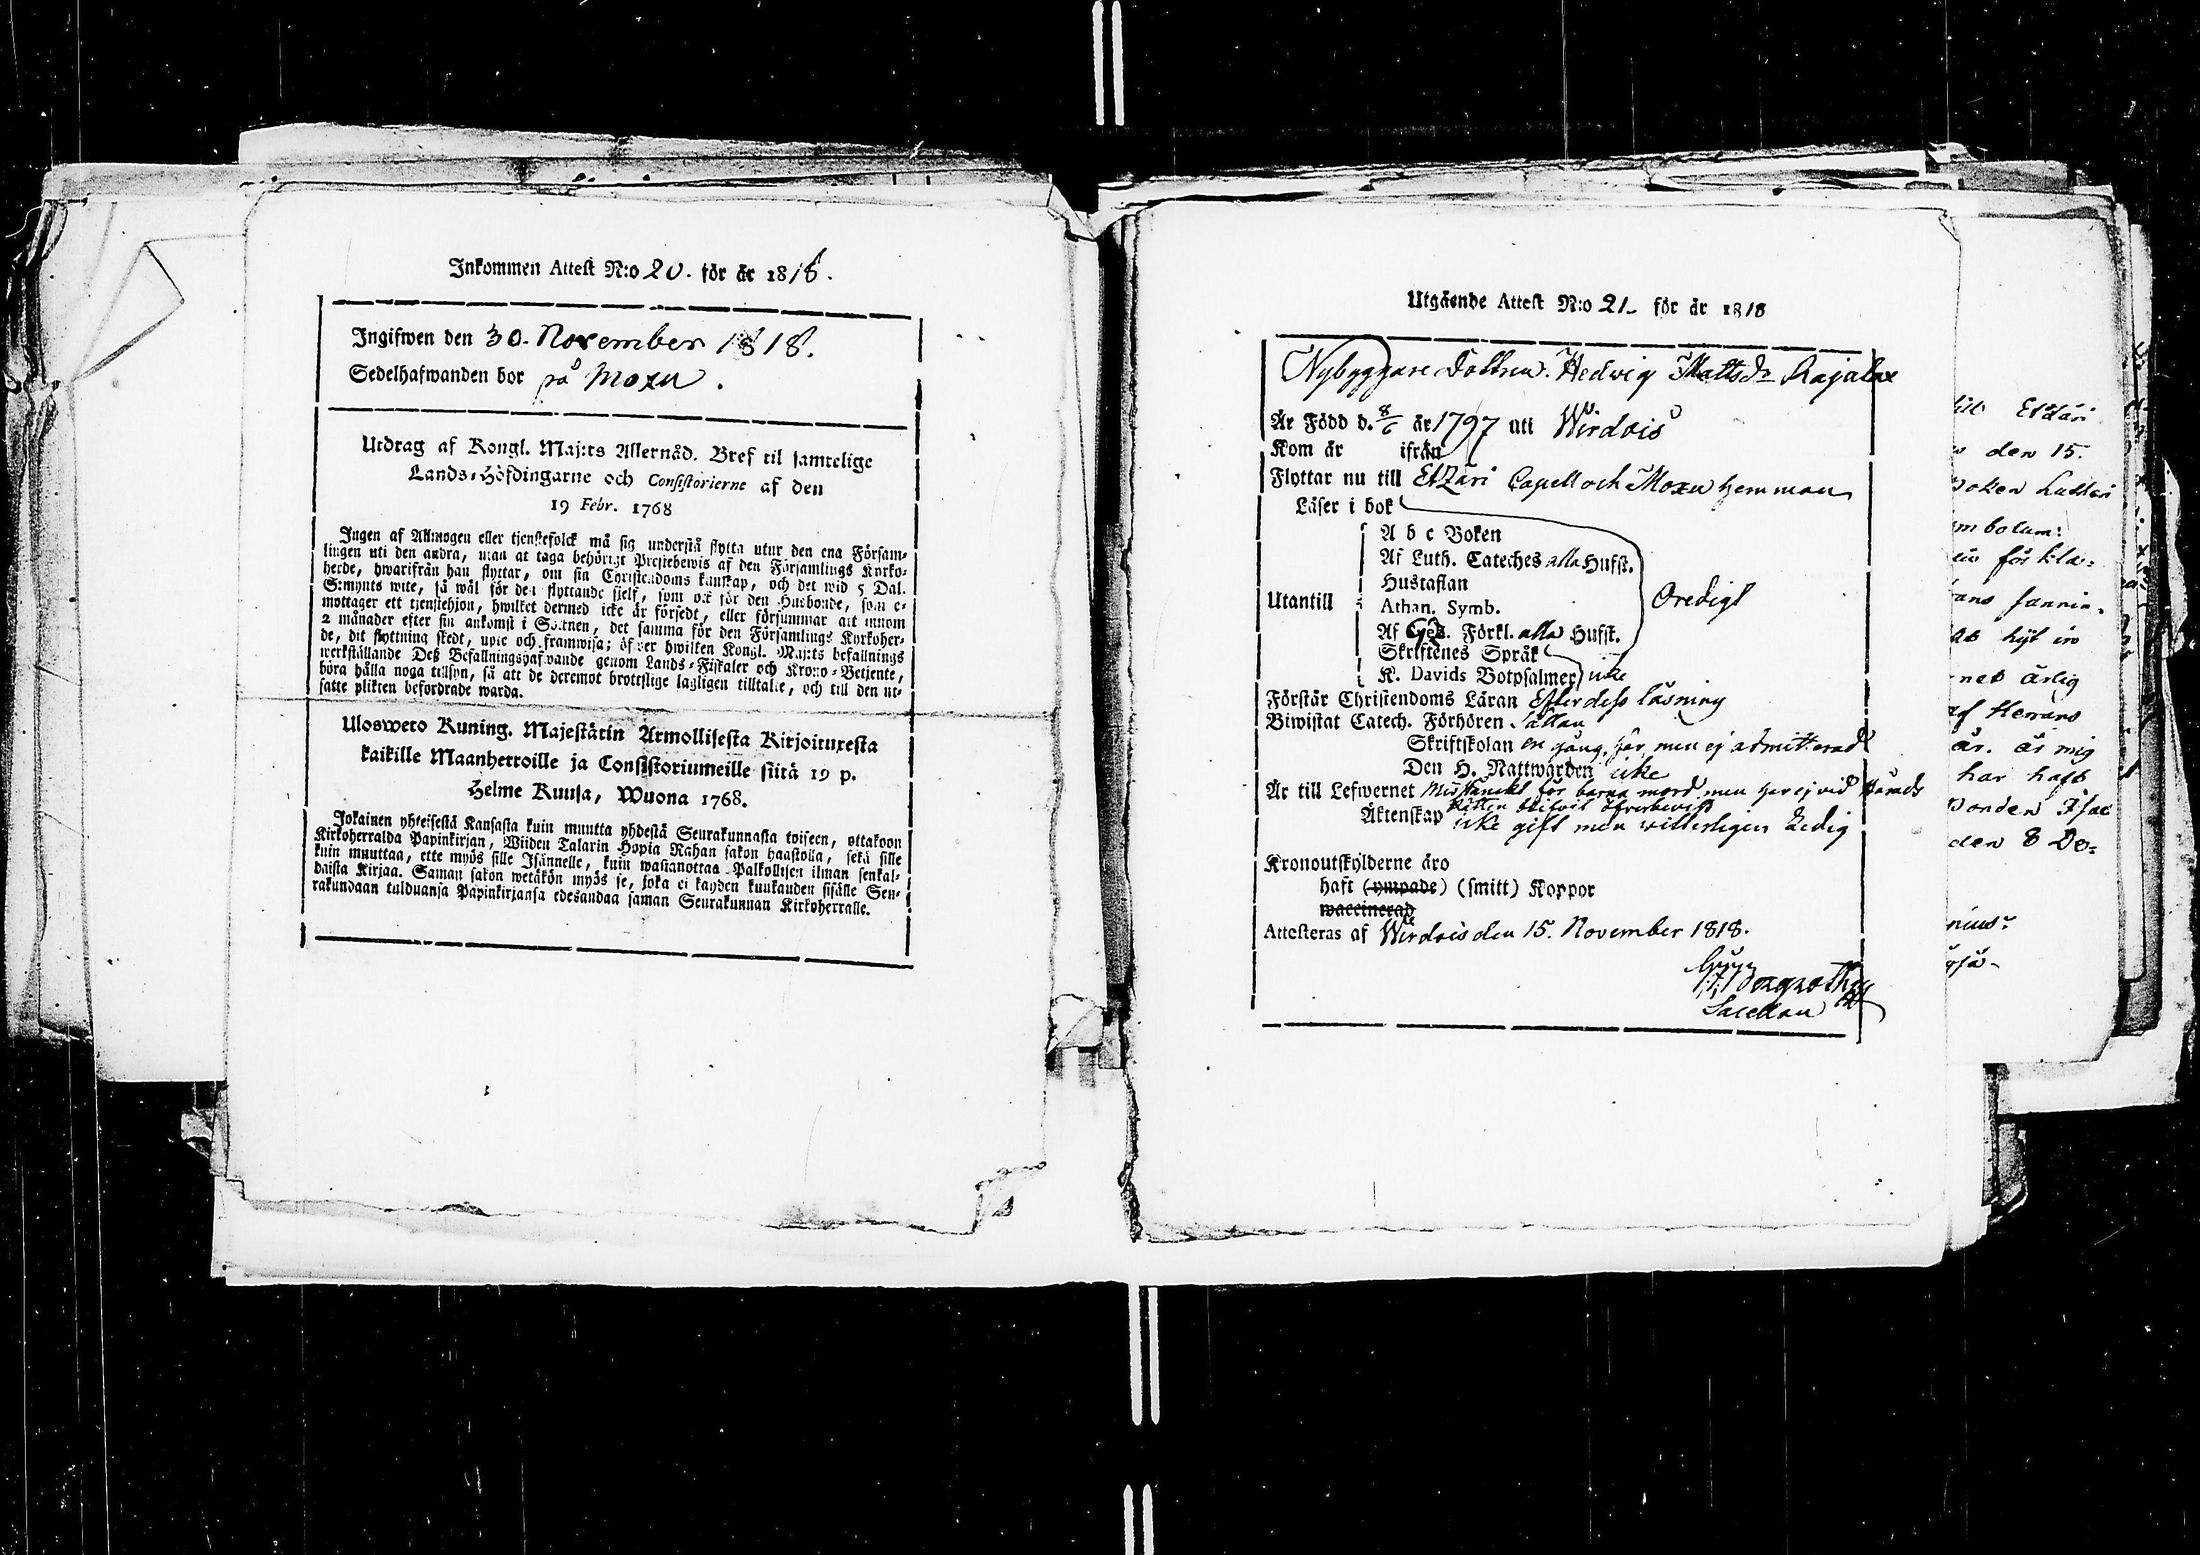 Inkommen Attest N:o 20. för år 1818.
Ingifwen den 30. November 1818.
Sedelhafwanden bor på Moxu.
Utdrag af Kongl. Maj:ts Allernåd. Bref til samtelige
Lands-Höfdingarne och Consistorierne af den
19 Febr. 1768
Ingen af Allmogen eller tjenstefolck må sig understå flytta utur den ena Försam-
lingen uti den andra, utan at taga behörigt Prestebewis af den Församlings Kyrko-
herde, hwarifrån han flyttar, om sin Christendoms kunskap, och det wid 5 Dal.
S:mynts wite, så wäl för den flyttande sjelf, som ock för den Husbonde, som e-
mottager ett tjenstehjon, hwilket dermed icke är försedt, eller försummar att innom
2 månader efter sin ankomst i Socknen, det samma för den Församlings Kyrkoher-
de, dit flyttning skedt, upte och framwisa; öfwer hwilken Kongl. Maj:ts befallnings
werkställande Deß Befallningshafwande genom Lands-Fiskaler och Krono-Betjente,
böra hålla noga tillsyn, så att de deremot brottslige lagligen tilltalte, och till den ut-
satte plikten befordrade warda.
Ulosweto Kuning. Majestätin Armollisesta Kirjoituxesta
kaikille Maanherroille ja Consistoriumeille siitä 19 p.
Helme Kuusa, Wuona 1768.
Jokainen yhteisestä Kansasta kuin muutta yhdestä Seurakunnasta toiseen, ottakoon
Kirkoherralda Papinkirjan, Wiiden Talarin Hopia Rahan sakon haastolla, sekä sille
kuin muuttaa, ette myös sille Isännelle, kuin wastanottaa Palkollisen ilman senkal-
daista Kirjaa. Saman sakon wetäkön myös se, joka ei kahden kuukauden sisälle Seu-
rakundaan tulduansa Papinkirjansa edesandaa saman Seurakunnan Kirkoherralle.
Utgående Attest N:o 21. för år 1818
Nybyggare Dottren. Hedwig Mattsdr Rajalax
Är Född d. 8/6 år 1797 uti Wirdois
Kom år ifrån
Flyttar nu till Etzäri Capell och Moxu hemman
Läser i bok
A b c Boken
Af Luth. Cateches alla Hufst.
Hustaflan
Utantill Athan. Symb. Oredigt
Af Gez. Förkl. alla Hufst.
Skriftenes Språk
K. Davids Botpsalmer icke
Förstår Christendoms Läran Efter dess läsning
Biwistat Catech. Förhören sällan
Skriftskolan en gång, här, men ej admitterad
Den H. Nattwarden icke
Är till Lefwernet Misstänckt för barna mord men här ej vid Härads
Rätten blifvit öfverbevist
Äktenskap icke gift men witterligen Ledig
Kronoutskylderne äro
haft (ympade) (smitt) Koppor
waccinerad
Attesteras af Wirdois den 15. November 1818.
Sacellan
Etzäri
den 15.
för kla-
net ärlig
af Herrans
år. är mig
har haft
Bonden Isac
den 8 De-